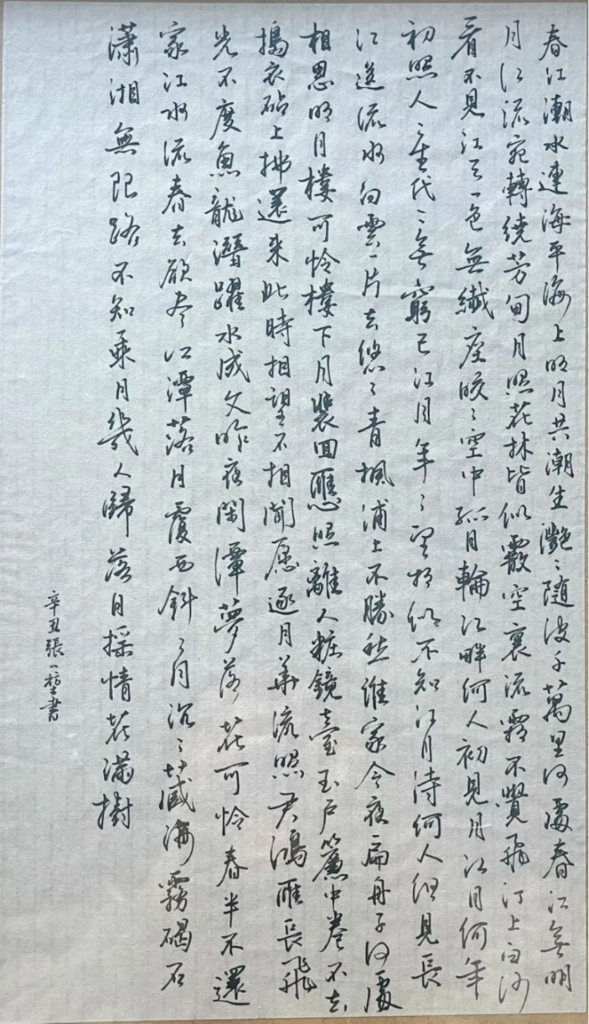 春江潮水連海平海上明月共潮生灧〻随波千萬里何處春江無明
月江流宛轉繞芳甸月照花林皆似霰空裏流霜不覺飛汀上白沙
看不見江天一色無纖座皎〻空中孤月輪江畔何人初見月江月何年
初照人〻生代〻無窮已江月年〻望相似不知江月待何人但見長
江送流水白雲一片去悠〻青楓浦上不勝愁誰家今夜扁舟子何處
相思明月樓可怜樓下月裴回應照離人粧鏡臺玉戶簾中卷不去
搗衣砧上拂還来此時相望不相聞愿逐月華流照君鴻雁長飛
光不度魚龍潛躍水成文昨夜閑潭夢落花可怜春半不還
家江水流春去欲盡江潭落月復西斜〻月沉〻藏海霧碣石
瀟湘無限路不知乘月幾人歸落月揺情花滿樹
辛丑張一書